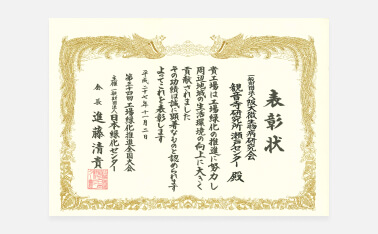 表彰状
一般財団法人阪大微生物病研究会
観音寺研究所瀬戸センター殿
貴工場は工場緑化の推進に努力し
周辺地域の生活環境の向上に大きく
貢献されました
その功績は誠に顕著なものと認められます
よってこれを表彰します
平成二十七年十一月二日
第三十四回工場緑化推進全国大会
主催 一般財団法人日本緑化センター
会長 進藤清貴